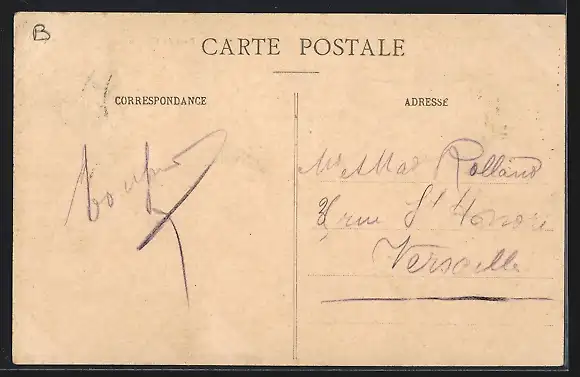 B
CARTE POSTALE
CORRESPONDANCE
ADRESSE
Mr et Mad Rolland
rue St Honoré
Versaille